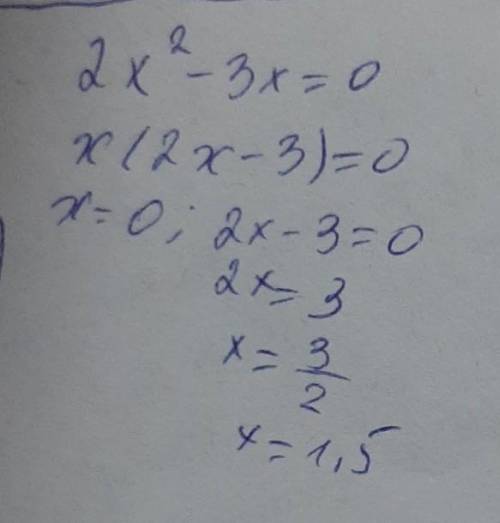 2x² - 3x = 0
x(2x - 3) = 0
x = 0; 2x - 3 = 0
2x = 3
x = 3/2
x = 1,5